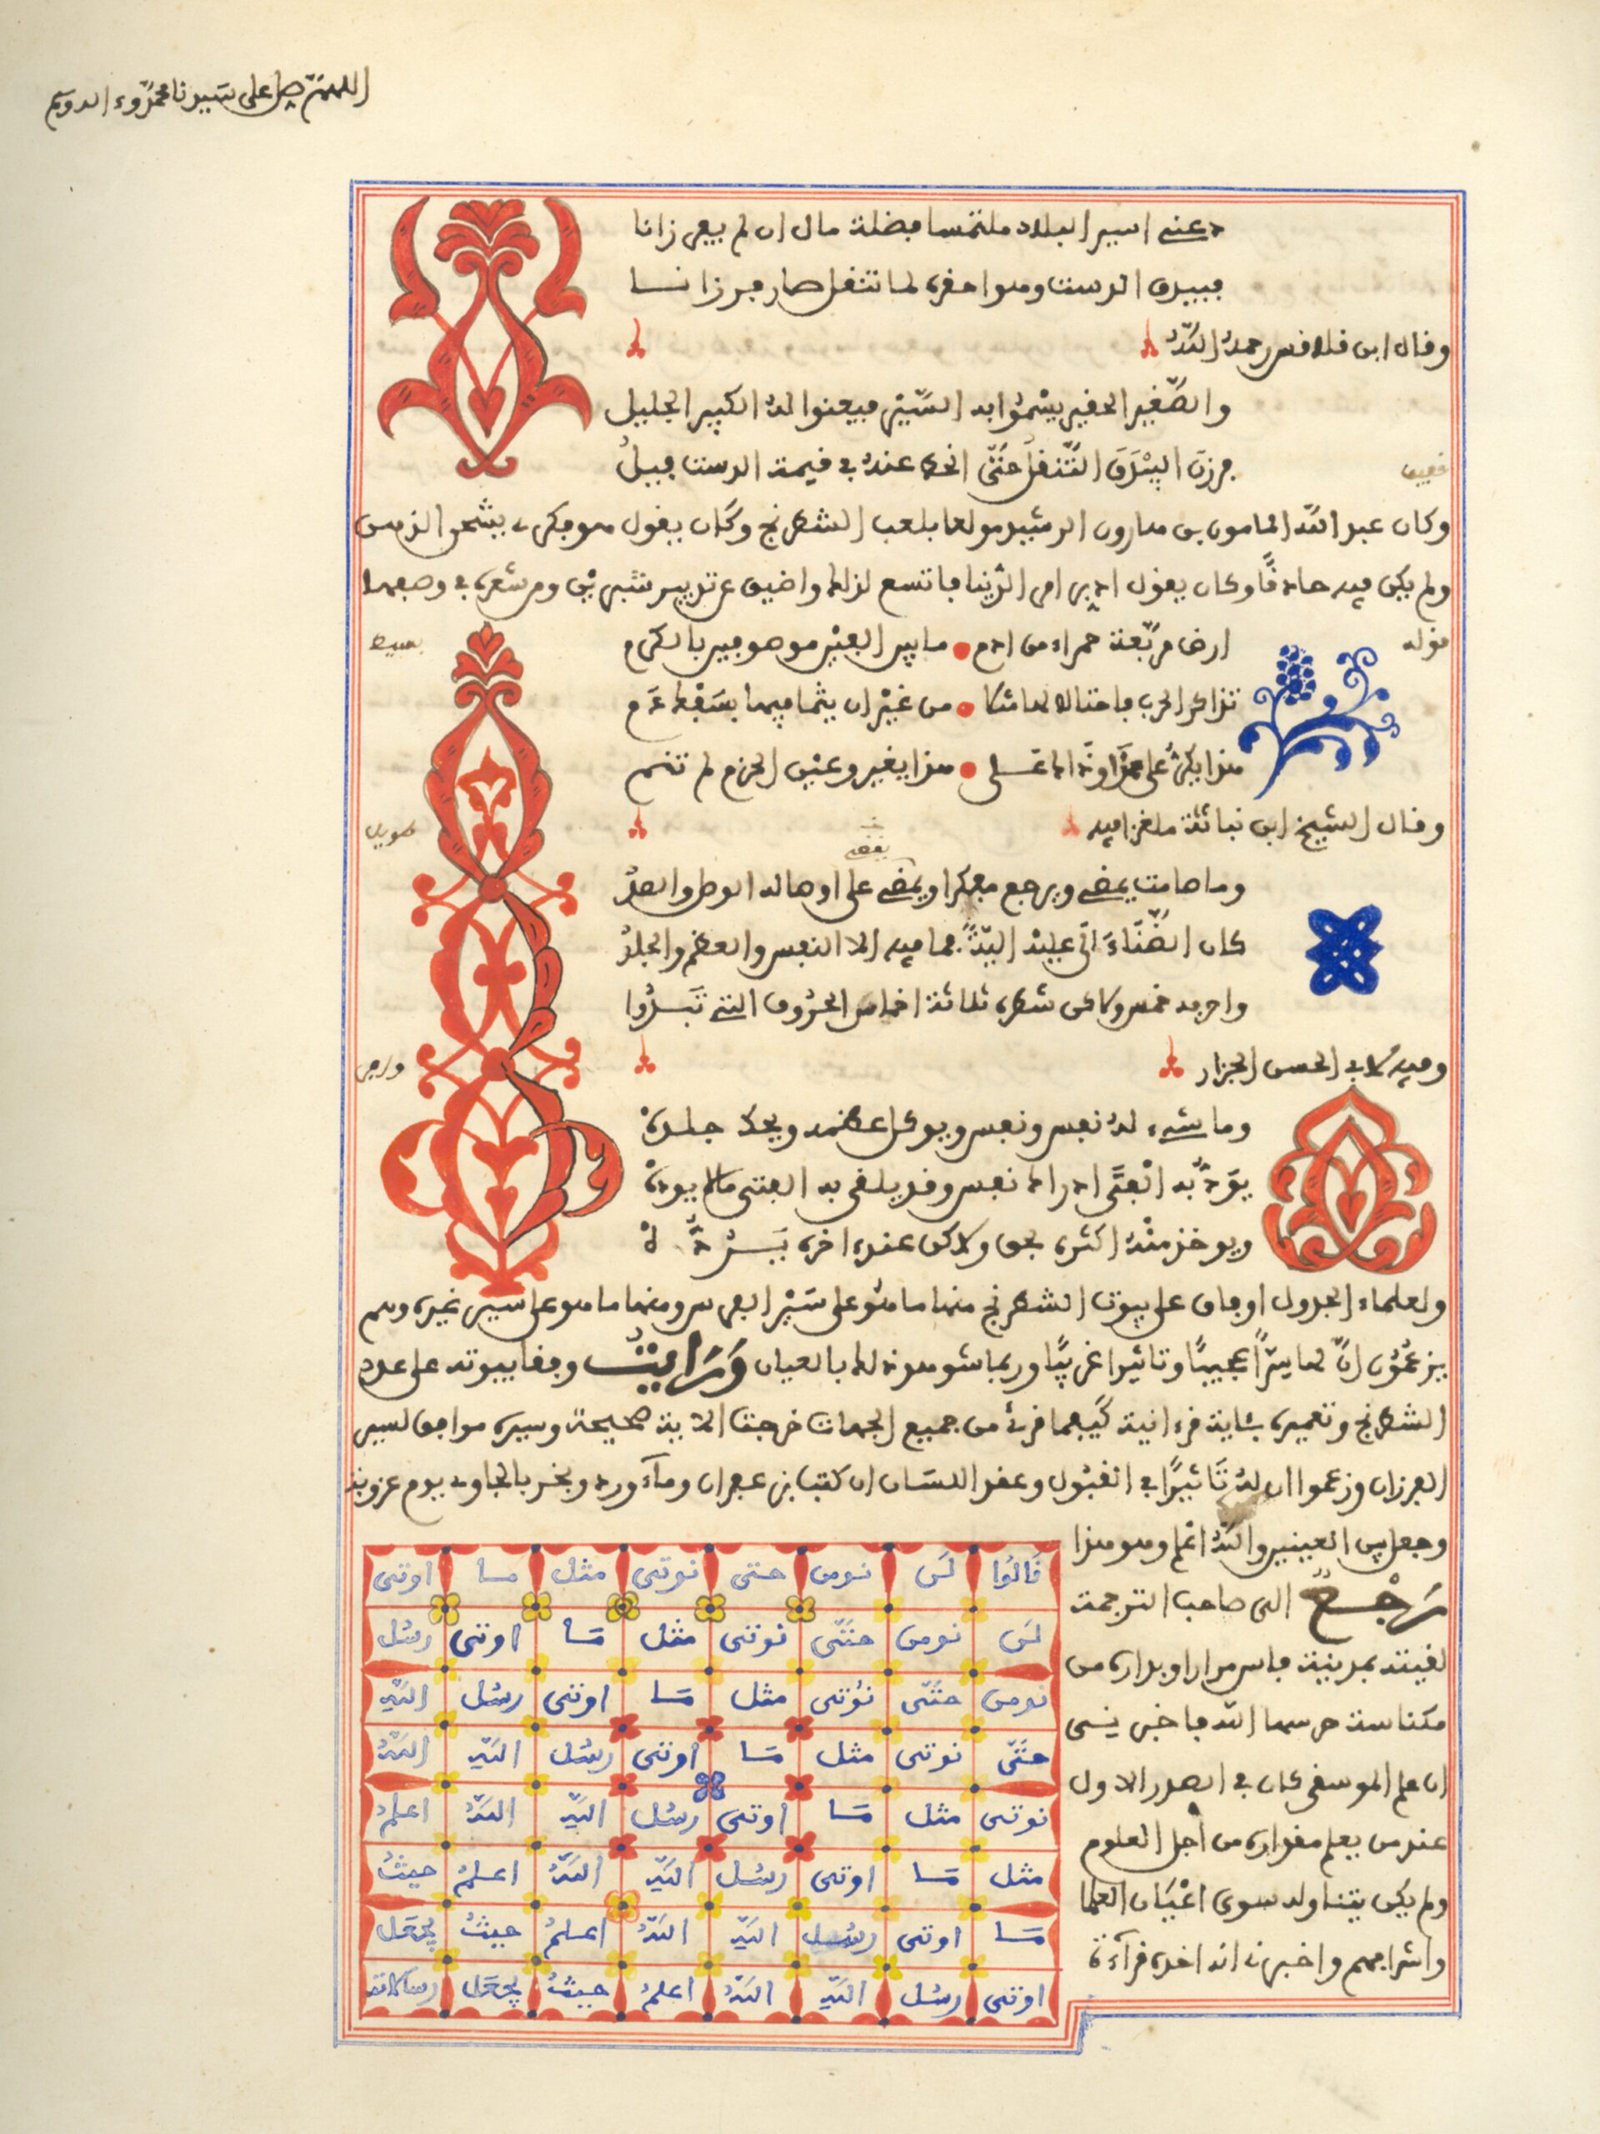 اللهم صل على سيدنا محمد وءاله وصحبه
دعني اسير البلاد ملتمسا فضلة مال ان لم يفر زانا
فبيدق الدست وهو احقره لما تنقل صار فرزانا
وقال ابن قلاقس رحمه الله
والصغير الحقير يسموا به السير فيعنوا له الكبير الجليل
خفيف
فرزن البيدق التنقل حتى انحط عنه في قيمة الدست فيل
وكان عبد الله المامون بن هارون الرشيد مولعا بلعب الشطرنج وكان يقول هو فكرة يشحن الذهن
ولم يكن فيه حاذقا وكان يقول ادبر امر الدنيا فاتسع لذلك واضيق عن تدبير شبرين ومن شعره في وصفها
قوله
ارض مربعة حمراء من ادم ما بين الفين موصوفين بالكرم
بسيط
تذاكرا الحرب فاحتالا لها مثلا من غير ان يثما فيها بسفك دم
هذا يكر على هذا وذاك على هذا يغير وعين الحزم لم تنم
وقال الشيخ ابن نباتة ملغزا فيه
طويل
وما صامت يمضي ويرجع مفكرا ويمضي على اوصاله الوصل والصد
كان الضنا الى عليه الية فما فيه الا النفس والعظم والجلد
واحرفه خمس ولاكن شطره ثلاثة اخماس الحروف التي تبدوا
وفيه لابي الحسن الجزار
وما شيء له نفس ونفس ويوكل عظمه ويحك جلده
يود به الفتى ادراك نفس وقد يلقى به الفتى مالا يوده
ويوخذ منه اكثره بحق ولاكن عند اخره يرده
ولعلماء الجدول اوفاق على بيوت الشطرنج منها ما هو على سير الفرس ومنها ما هو على سير غيره وهم
يزعمون ان لها سرا عجيبا وتاثيرا غريبا وربما شوهد ذلك بالعيان ورايت وفقا بيوته على عدد
الشطرنج وتعميره بئاية قرءانية كيفما قرئ من جميع الجهات خرجت الاية صحيحة وسيره موافق لسير
الفرزان وزعموا ان له تاثيرا في القبول وعقد اللسان ان كتب بزعفران ومآء ورد وبخر بالجاوي يوم عروبة
وجعل بين العينين والله اعلم وهو هذا
رجع الى صاحب الترجمة
لقيته بمدينة فاس مرارا وبداره من
مكناسة حرسها الله فاخبرني
ان علم الموسقى كان في الصدر الاول
عند من يعلم مقداره من اجل العلوم
ولم يكن يتناوله سوى اعيان العلما
واشرافهم واخبرني انه اخذه قرآءة
قالوا لن نومن حتى نوتى مثل ما اوتي
لن نومن حتى نوتى مثل ما اوتي رسل
نومن حتى نوتى مثل ما اوتي رسل الله
حتى نوتى مثل ما اوتي رسل الله الله
نوتى مثل ما اوتي رسل الله الله اعلم
مثل ما اوتي رسل الله الله اعلم حيث
ما اوتي رسل الله الله اعلم حيث يجعل
اوتي رسل الله الله اعلم حيث يجعل رسالاته